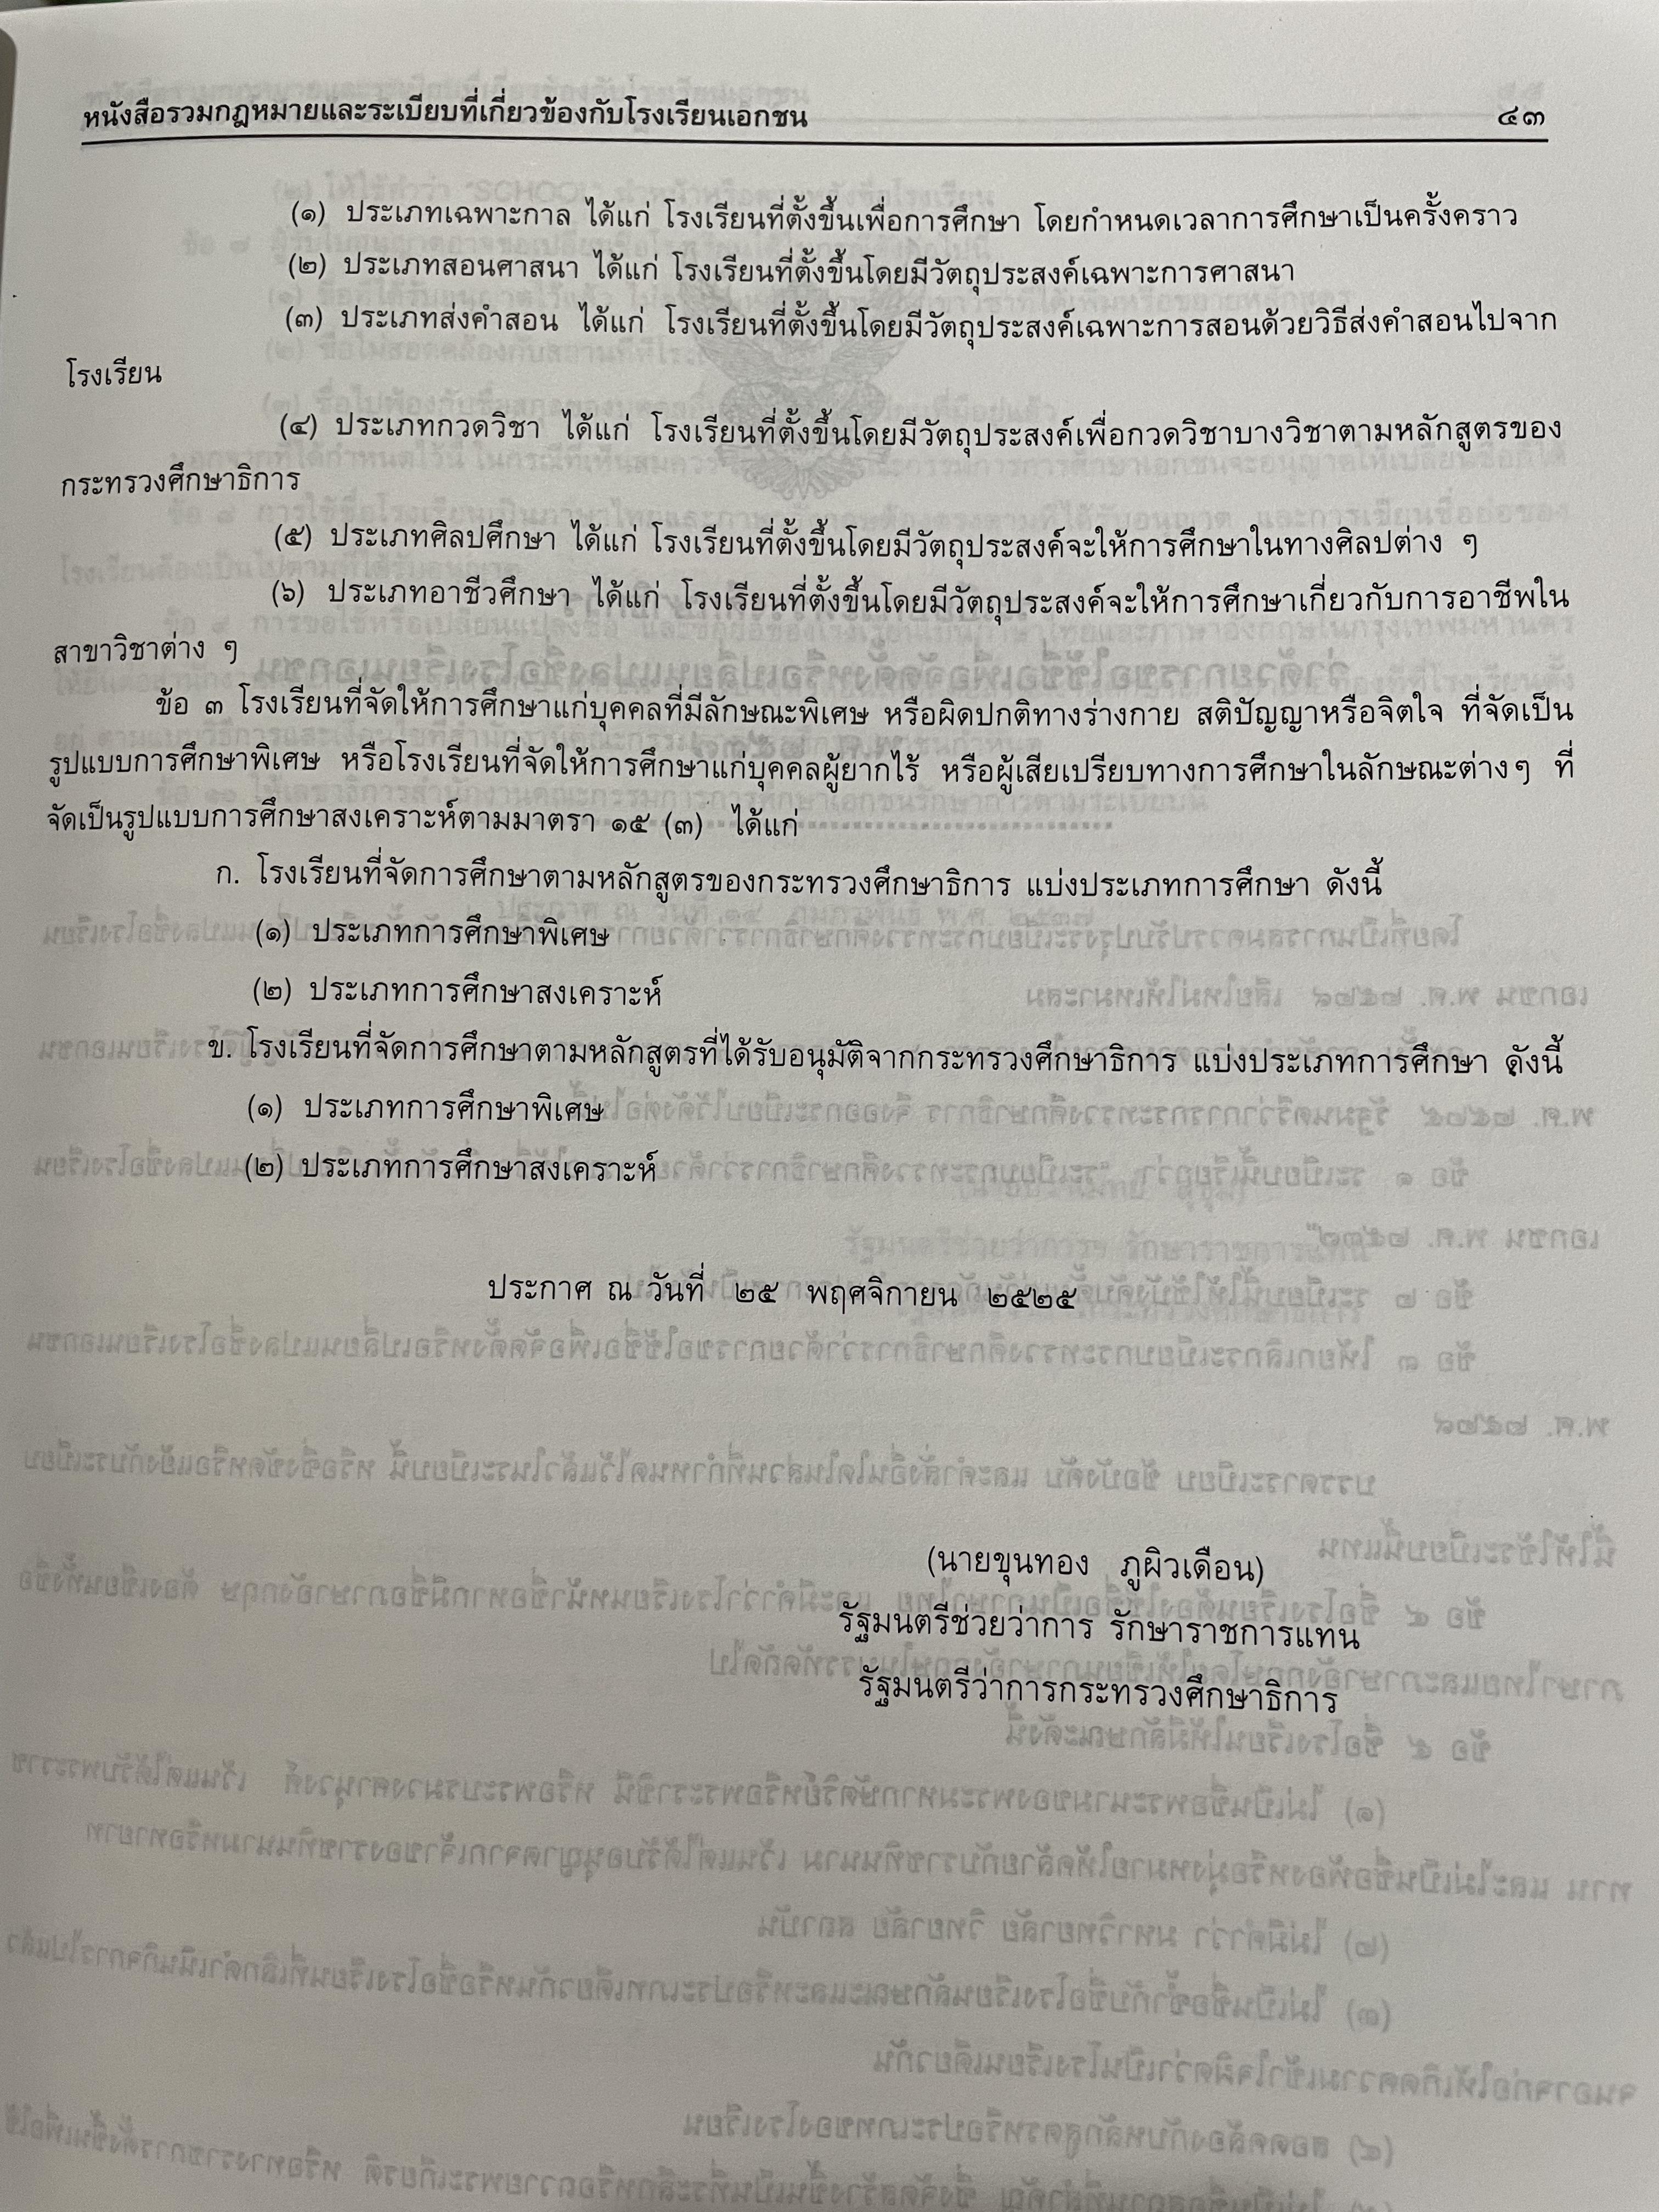 หนังสือรวมกฎหมายและระเบียบที่เกี่ยวข้องกับโรงเรียนเอกชน ๔๓
(๑) ประเภทเฉพาะกาล ได้แก่ โรงเรียนที่ตั้งขึ้นเพื่อการศึกษา โดยกำหนดเวลาการศึกษาเป็นครั้งคราว
(๒) ประเภทสอนศาสนา ได้แก่ โรงเรียนที่ตั้งขึ้นโดยมีวัตถุประสงค์เฉพาะการศาสนา
(๓) ประเภทส่งคำสอน ได้แก่ โรงเรียนที่ตั้งขึ้นโดยมีวัตถุประสงค์เฉพาะการสอนด้วยวิธีส่งคำสอนไปจาก
โรงเรียน
(๔) ประเภทกวดวิชา ได้แก่ โรงเรียนที่ตั้งขึ้นโดยมีวัตถุประสงค์เพื่อกวดวิชาบางวิชาตามหลักสูตรของ
กระทรวงศึกษาธิการ
(๕) ประเภทศิลปศึกษา ได้แก่ โรงเรียนที่ตั้งขึ้นโดยมีวัตถุประสงค์จะให้การศึกษาในทางศิลปต่าง ๆ
(๖) ประเภทอาชีวศึกษา ได้แก่ โรงเรียนที่ตั้งขึ้นโดยมีวัตถุประสงค์จะให้การศึกษาเกี่ยวกับการอาชีพใน
สาขาวิชาต่าง ๆ
ข้อ ๓ โรงเรียนที่จัดให้การศึกษาแก่บุคคลที่มีลักษณะพิเศษ หรือผิดปกติทางร่างกาย สติปัญญาหรือจิตใจ ที่จัดเป็น
รูปแบบการศึกษาพิเศษ หรือโรงเรียนที่จัดให้การศึกษาแก่บุคคลผู้ยากไร้ หรือผู้เสียเปรียบทางการศึกษาในลักษณะต่างๆ ที่
จัดเป็นรูปแบบการศึกษาสงเคราะห์ตามมาตรา ๑๕ (๓) ได้แก่
ก. โรงเรียนที่จัดการศึกษาตามหลักสูตรของกระทรวงศึกษาธิการ แบ่งประเภทการศึกษา ดังนี้
(๑) ประเภทการศึกษาพิเศษ
(๒) ประเภทการศึกษาสงเคราะห์
ข. โรงเรียนที่จัดการศึกษาตามหลักสูตรที่ได้รับอนุมัติจากกระทรวงศึกษาธิการ แบ่งประเภทการศึกษา ดังนี้
(๑) ประเภทการศึกษาพิเศษ
(๒) ประเภทการศึกษาสงเคราะห์
ประกาศ ณ วันที่ ๒๕ พฤศจิกายน ๒๕๒๕
(นายขุนทอง ภูผิวเดือน)
รัฐมนตรีช่วยว่าการ รักษาราชการแทน
รัฐมนตรีว่าการกระทรวงศึกษาธิการ